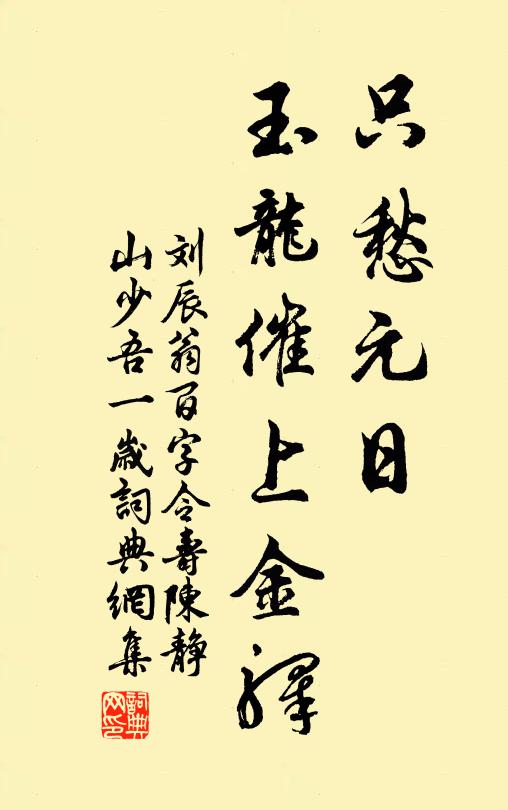 只愁元日
玉龍催上金驛
刘辰翁百字令壽陳静
山少吾一歲詞典網集
詞典网印